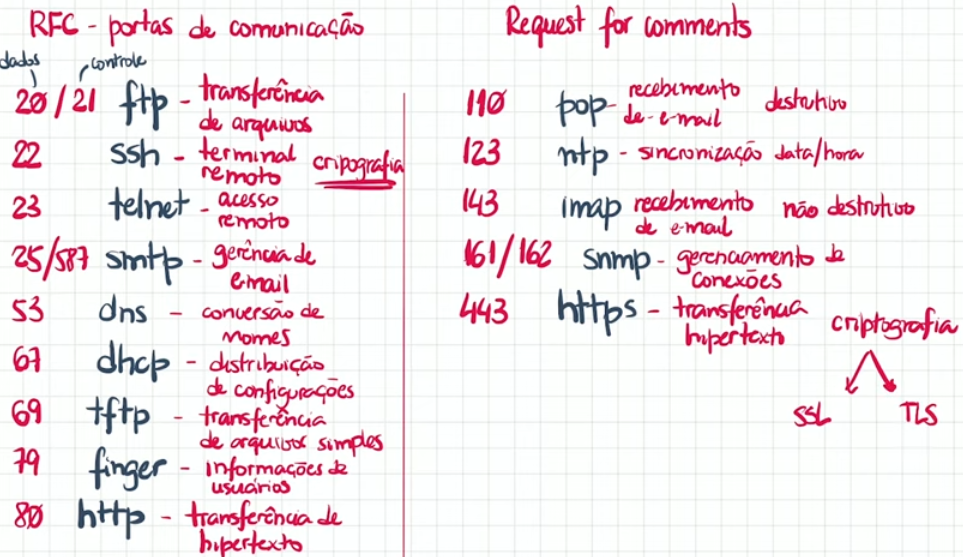 RFC - portas de comunicação
dados
controle
20/21 ftp - transferência
de arquivos
22 ssh - terminal
remoto cripografia
23 telnet - acesso
remoto
25/587 smtp - gerência de
email
53 dns - conversão de
nomes
67 dhcp - distribuição
de configurações
69 tftp - transferência
de arquivos simples
79 finger - informações de
usuários
80 http - transferência de
hipertexto
Request for comments
110 pop - recebimento
de e-mail destrutivo
123 ntp - sincronização data/hora
143 imap recebimento
de e-mail não destrutivo
161/162 snmp - gerenciamento de
conexões
443 https - transferência
hipertexto criptografia
SSL TLS